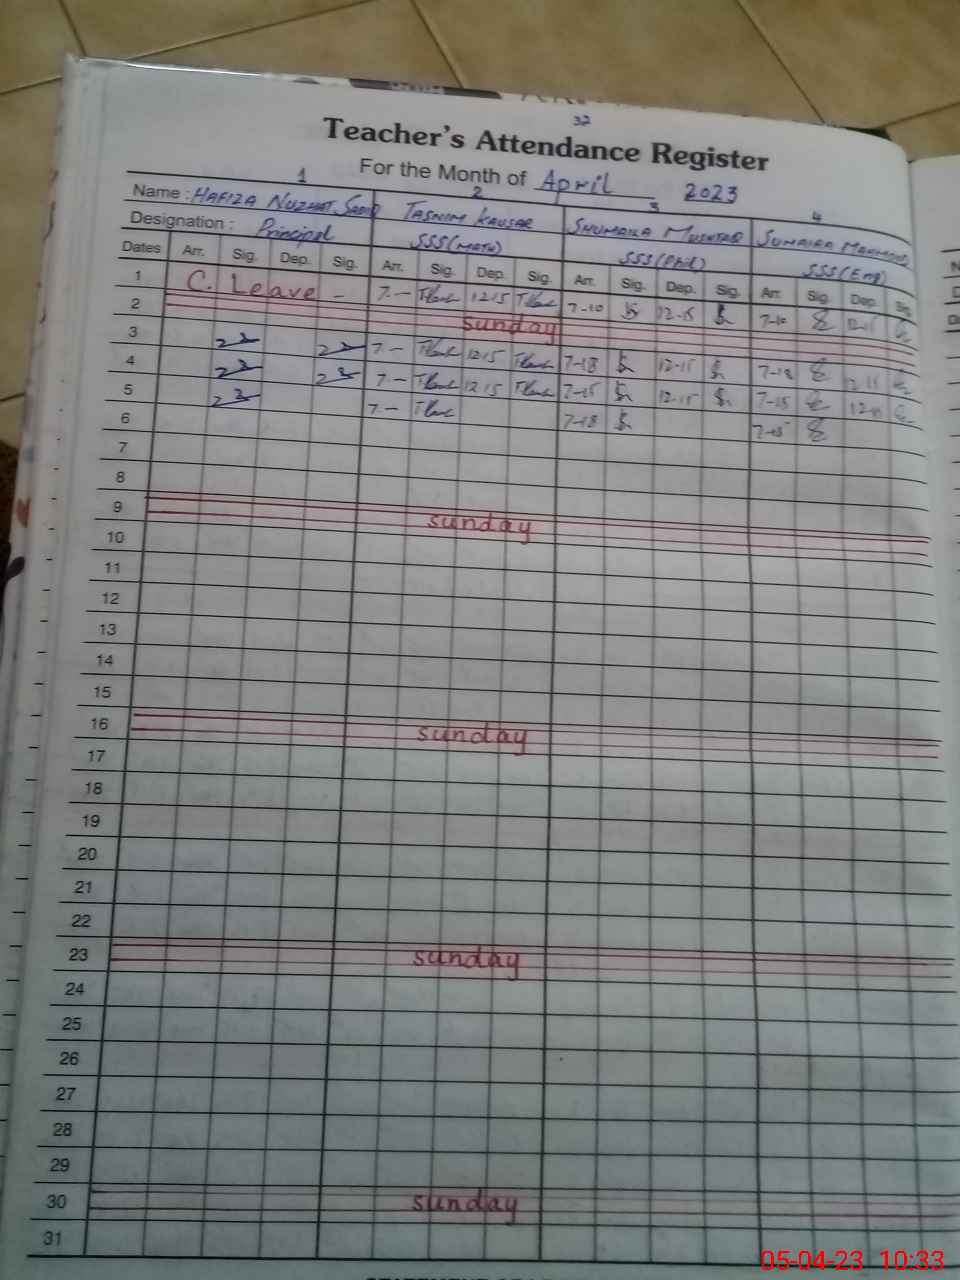 32
Teacher's Attendance Register
For the Month of April 2023
1 2 3 4
Name : HAFIZA NUZHAT SADIQ TASNIM KAUSAR SHUMAILA MUSHTAQ SUMAIRA
Designation : Principal SSS(MATH) SSS(Phil) SSS(Eng)
Dates Arr. Sig. Dep. Sig. Arr. Sig. Dep. Sig. Arr. Sig. Dep. Sig. Arr. Sig. Dep. Sig.
1 C. Leave - 7.- 12.15 7-10 12-15 7-10
2 sunday
3 7.- 12.15 7-18 12-15 7-18
4 7.- 12.15 7-15 12-15 7-15
5 7.- 7-18 7-15
6
7
8
9 sunday
10
11
12
13
14
15
16 sunday
17
18
19
20
21
22
23 sunday
24
25
26
27
28
29
30 sunday
31
05-04-23 10:33